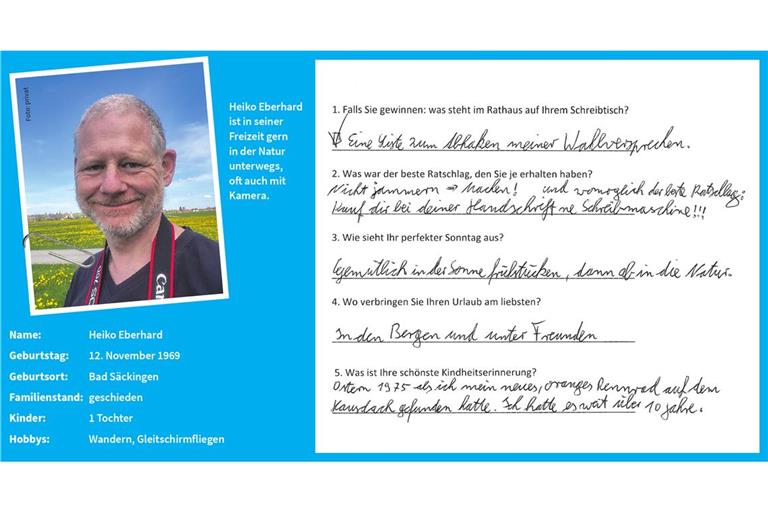 Foto: privat
Heiko Eberhard
ist in seiner
Freizeit gern
in der Natur
unterwegs,
oft auch mit
Kamera.
Can
Name: Heiko Eberhard
Geburtstag: 12. November 1969
Geburtsort: Bad Säckingen
Familienstand: geschieden
Kinder: 1 Tochter
Hobbys: Wandern, Gleitschirmfliegen
1. Falls Sie gewinnen: was steht im Rathaus auf Ihrem Schreibtisch?
Eine Liste zum Abhaken meiner Wahlversprechen.
2. Was war der beste Ratschlag, den Sie je erhalten haben?
Nicht jammern => Machen! und womöglich der beste Ratschlag:
Kauf dir bei deiner Handschrift ne Schreibmaschine!!!
3. Wie sieht Ihr perfekter Sonntag aus?
Gemütlich in der Sonne frühstücken, dann ab in die Natur.
4. Wo verbringen Sie Ihren Urlaub am liebsten?
In den Bergen und unter Freunden
5. Was ist Ihre schönste Kindheitserinnerung?
Ostern 1975 als ich mein neues, oranges Rennrad auf dem
gefunden hatte. Ich hatte es weit über 10 Jahre.